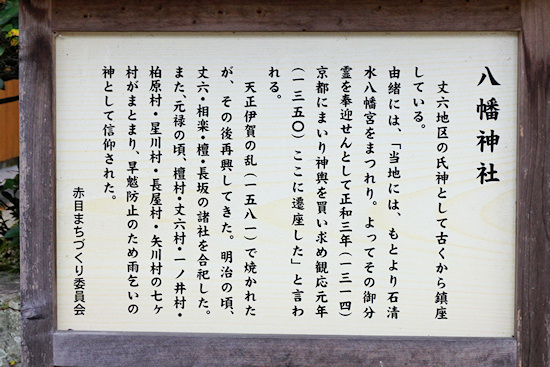 八幡神社
丈六地区の氏神として古くから鎮座
している。
由緒には、「当地には、もとより石清
水八幡宮をまつれり。よってその御分
霊を奉迎せんとして正和三年(一三一四)
京都にまいり神輿を買い求め観応元年
(一三五〇)ここに遷座した」と言わ
れる。
天正伊賀の乱(一五八一)で焼かれた
が、その後再興してきた。明治の頃、
丈六・相楽・檀・長坂の諸社を合祀した。
また、元禄の頃、檀村・丈六村・一ノ井村・
柏原村・星川村・長屋村・矢川村の七ヶ
村がまとまり、旱魃防止のため雨乞いの
神として信仰された。
赤目まちづくり委員会